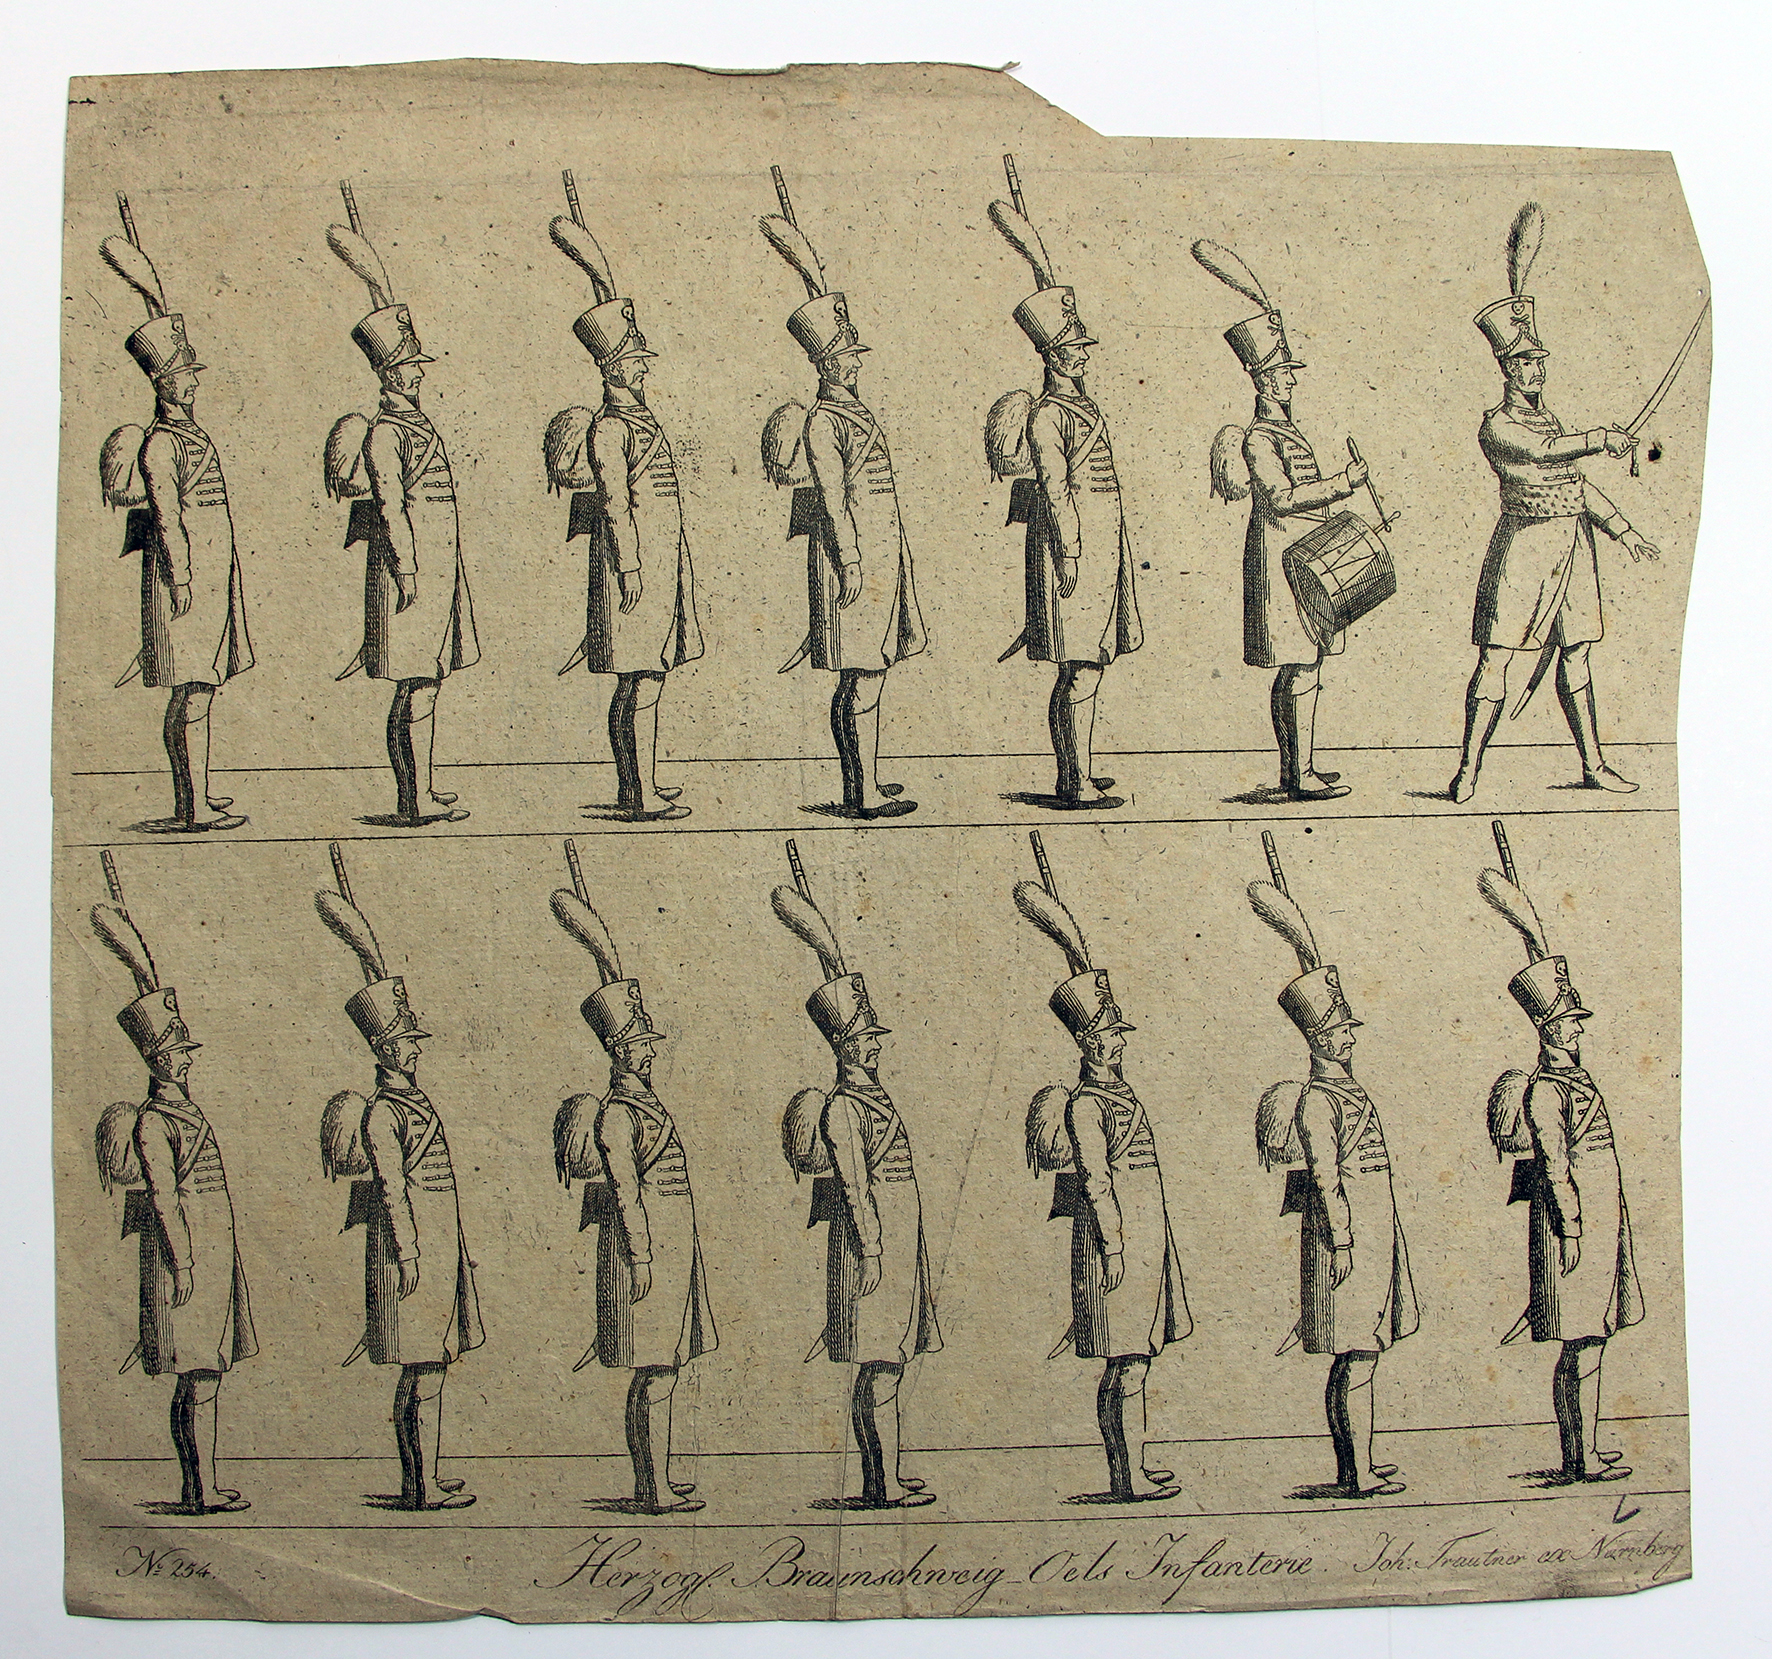 Nº 254.
Herzogl. Braunschweig-Oels Infanterie.
Joh: Trautner exc Nürnberg